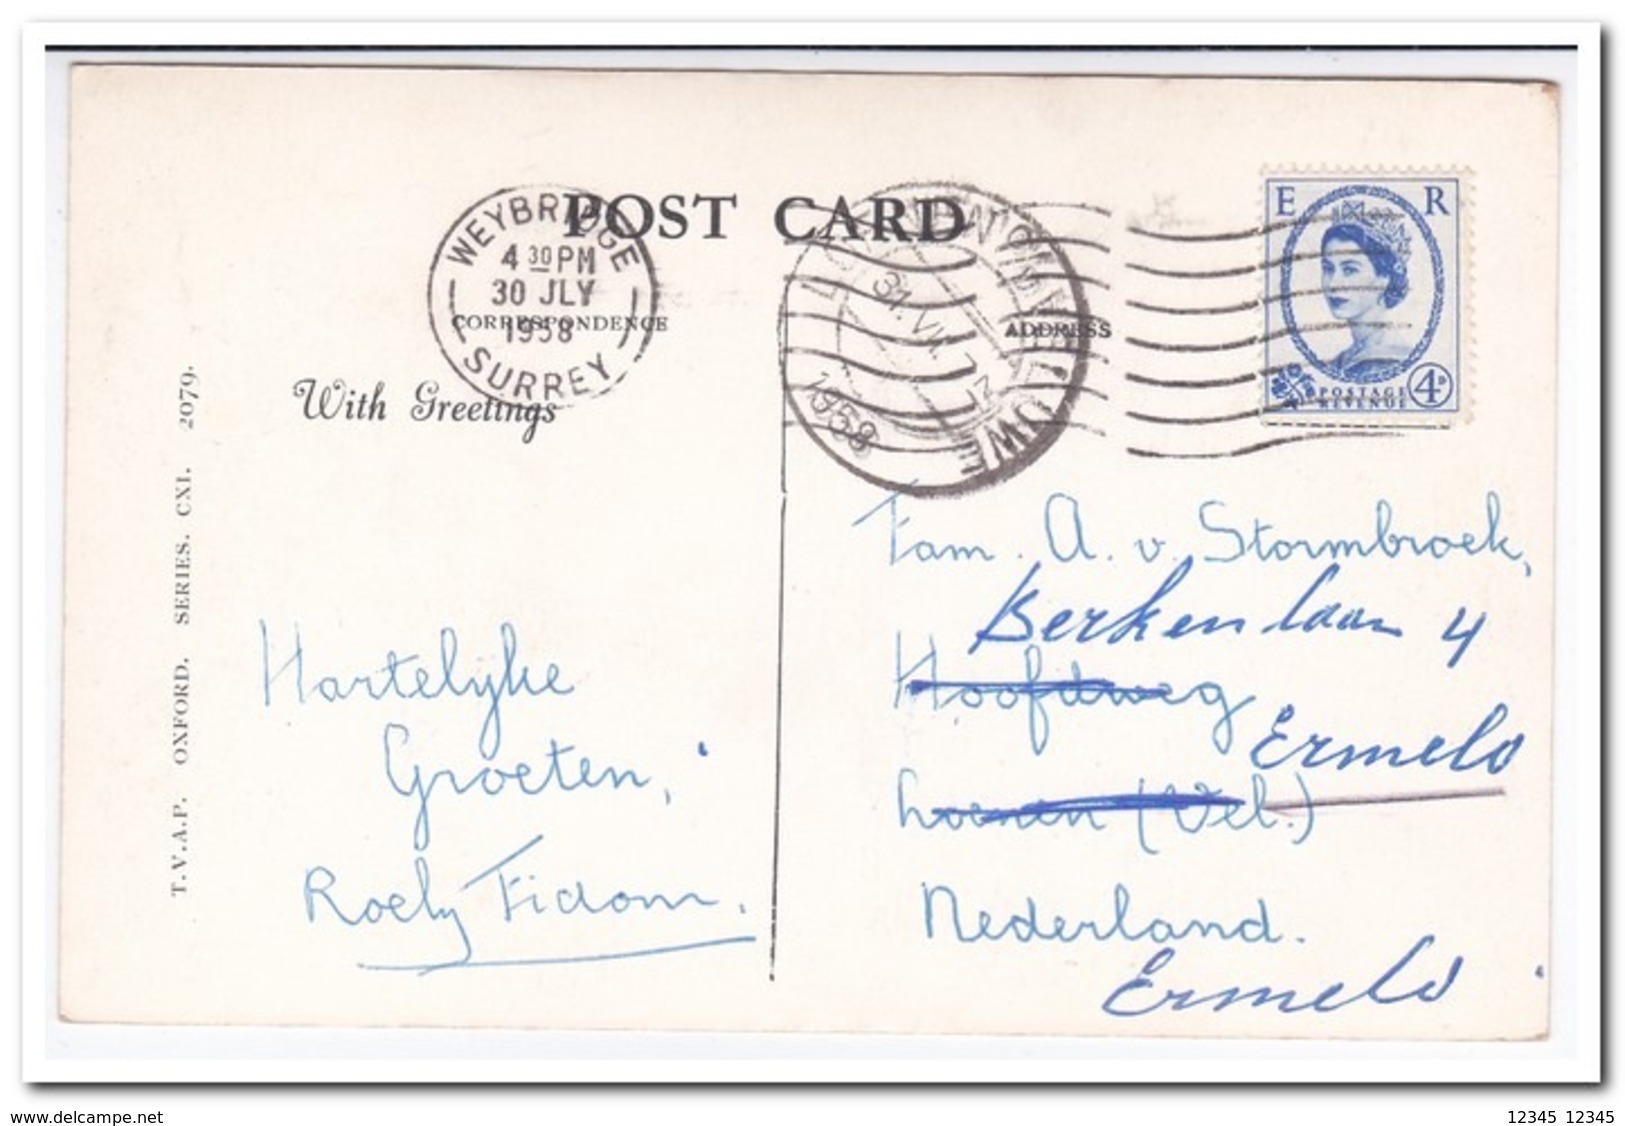 POST CARD
WEYBRIDGE
4 30 PM
30 JLY
1958
SURREY
CORRESPONDENCE
ADDRESS
1958
E R
POSTAGE
REVENUE
4D
With Greetings
T.V.A.P. OXFORD. SERIES. CXI. 2079.
Hartelyke
Groeten,
Roely Fidom.
Fam. A. v. Stormbroek,
Berkenlaan 4
Hoofdweg
Ermelo
Loenen (Vel.)
Nederland.
Ermelo
www.delcampe.net
12345 12345